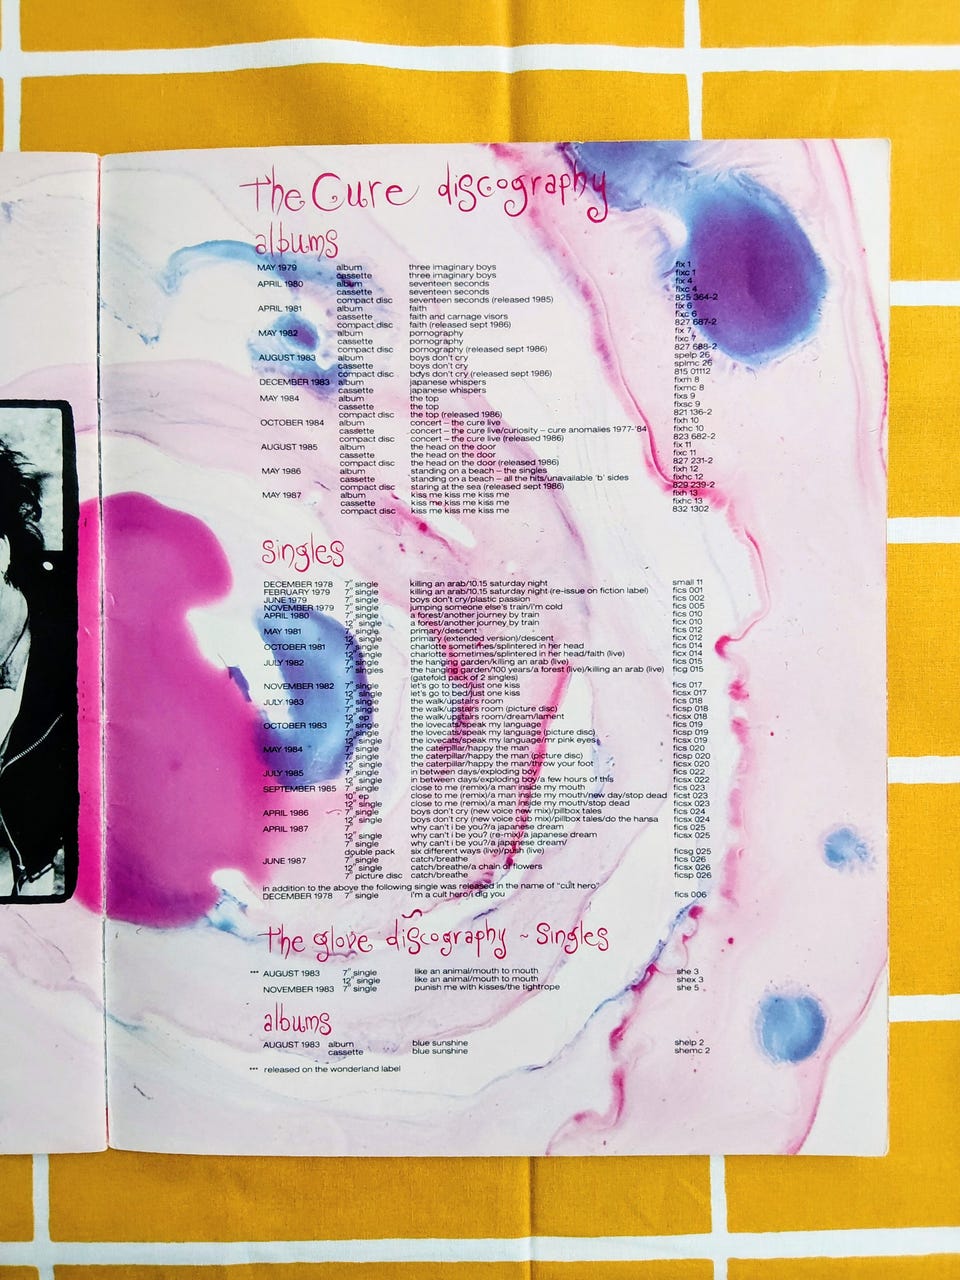 The Cure discography
albums
MAY 1979 album three imaginary boys fix 1
cassette three imaginary boys fixc 1
APRIL 1980 album seventeen seconds fix 4
cassette seventeen seconds fixc 4
compact disc seventeen seconds (released 1985) 825 364-2
APRIL 1981 album faith fix 6
cassette faith and carnage visors fixc 6
compact disc faith (released sept 1986) 827 687-2
MAY 1982 album pornography fix 7
cassette pornography fixc 7
compact disc pornography (released sept 1986) 827 688-2
AUGUST 1983 album boys don't cry spelp 26
cassette boys don't cry splmc 26
compact disc boys don't cry (released sept 1986) 815 01112
DECEMBER 1983 album japanese whispers fixm 8
cassette japanese whispers fixmc 8
MAY 1984 album the top fixs 9
cassette the top fixsc 9
compact disc the top (released 1986) 821 136-2
OCTOBER 1984 album concert – the cure live fixh 10
cassette concert – the cure live/curiosity – cure anomalies 1977-'84 fixhc 10
compact disc concert – the cure live (released 1986) 823 682-2
AUGUST 1985 album the head on the door fix 11
cassette the head on the door fixc 11
compact disc the head on the door (released 1986) 827 231-2
MAY 1986 album standing on a beach – the singles fixh 12
cassette standing on a beach – all the hits/unavailable 'b' sides fixhc 12
compact disc staring at the sea (released sept 1986) 829 239-2
MAY 1987 album kiss me kiss me kiss me fixh 13
cassette kiss me kiss me kiss me fixhc 13
compact disc kiss me kiss me kiss me 832 1302
singles
DECEMBER 1978 7" single killing an arab/10.15 saturday night small 11
FEBRUARY 1979 7" single killing an arab/10.15 saturday night (re-issue on fiction label) fics 001
JUNE 1979 7" single boys don't cry/plastic passion fics 002
NOVEMBER 1979 7" single jumping someone else's train/i'm cold fics 005
APRIL 1980 7" single a forest/another journey by train fics 010
12" single a forest/another journey by train ficx 010
MAY 1981 7" single primary/descent fics 012
12" single primary (extended version)/descent ficx 012
OCTOBER 1981 7" single charlotte sometimes/splintered in her head fics 014
12" single charlotte sometimes/splintered in her head/faith (live) ficx 014
JULY 1982 7" single the hanging garden/killing an arab (live) fics 015
7" singles the hanging garden/100 years/a forest (live)/killing an arab (live) ficg 015
(gatefold pack of 2 singles)
NOVEMBER 1982 7" single let's go to bed/just one kiss fics 017
12" single let's go to bed/just one kiss ficsx 017
JULY 1983 7" single the walk/upstairs room fics 018
7" single the walk/upstairs room (picture disc) ficsp 018
12" ep the walk/upstairs room/dream/lament ficsx 018
OCTOBER 1983 7" single the lovecats/speak my language fics 019
7" single the lovecats/speak my language (picture disc) ficsp 019
12" single the lovecats/speak my language/mr pink eyes ficsx 019
MAY 1984 7" single the caterpillar/happy the man fics 020
7" single the caterpillar/happy the man (picture disc) ficsp 020
12" single the caterpillar/happy the man/throw your foot ficsx 020
JULY 1985 7" single in between days/exploding boy fics 022
12" single in between days/exploding boy/a few hours of this ficsx 022
SEPTEMBER 1985 7" single close to me (remix)/a man inside my mouth fics 023
10" ep close to me (remix)/a man inside my mouth/new day/stop dead ficst 023
12" single close to me (remix)/a man inside my mouth/stop dead ficsx 023
APRIL 1986 7" single boys don't cry (new voice new mix)/pillbox tales fics 024
12" single boys don't cry (new voice club mix)/pillbox tales/do the hansa ficsx 024
APRIL 1987 7" why can't i be you?/a japanese dream fics 025
12" single why can't i be you? (re-mix)/a japanese dream ficsx 025
7" single why can't i be you?/a japanese dream/
double pack six different ways (live)/push (live) ficsg 025
JUNE 1987 7" single catch/breathe fics 026
12" single catch/breathe/a chain of flowers ficsx 026
7" picture disc catch/breathe ficsp 026
in addition to the above the following single was released in the name of "cult hero"
DECEMBER 1978 7" single i'm a cult hero/i dig you fics 006
the glove discography ~ singles
*** AUGUST 1983 7" single like an animal/mouth to mouth she 3
12" single like an animal/mouth to mouth shex 3
NOVEMBER 1983 7" single punish me with kisses/the tightrope she 5
albums
AUGUST 1983 album blue sunshine shelp 2
cassette blue sunshine shemc 2
*** released on the wonderland label